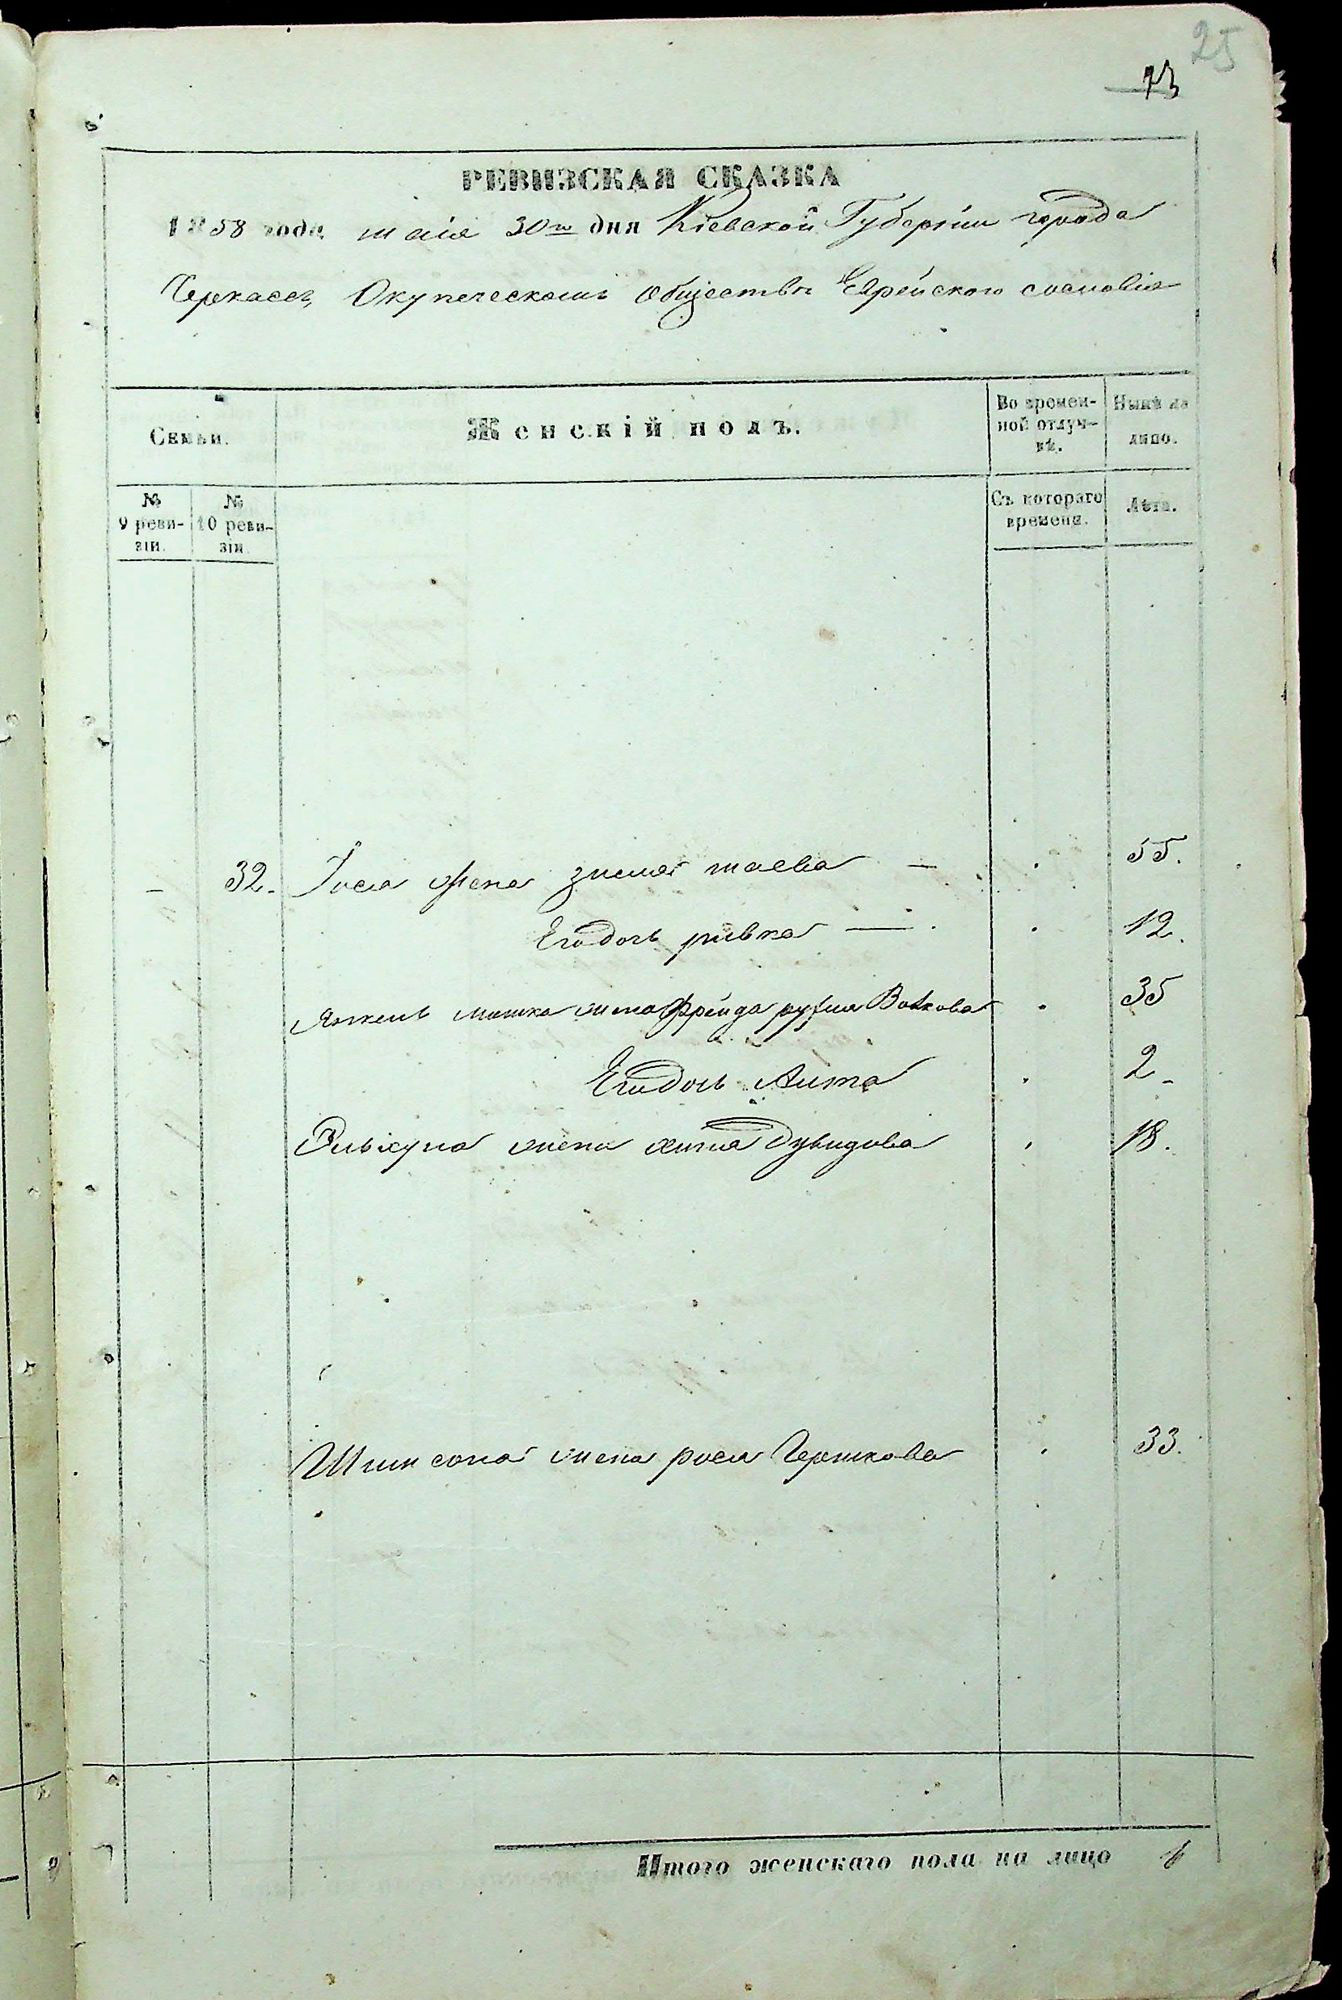 25
73
РЕВИЗСКАЯ СКАЗКА
1858 года маія 30го дня Кіевской Губерніи города
Черкасъ, Окупеческомъ обществѣ Еврейского сословія
Семьи.
Женскій полъ.
Во времен-
ной отлуч-
кѣ.
Нынѣ на
лицо.
№
9 реви-
зіи.
№
10 реви-
зіи.
Съ котораго
времени.
Лѣта.
— 32. жена маева — 55.
Егодочь ривка — 12.
мошка жена Фрейда Волкова 35
Егодочь 2
жена хина 18.
Шимсона жена рося Гершкова 33.
Итого женскаго пола на лицо 6